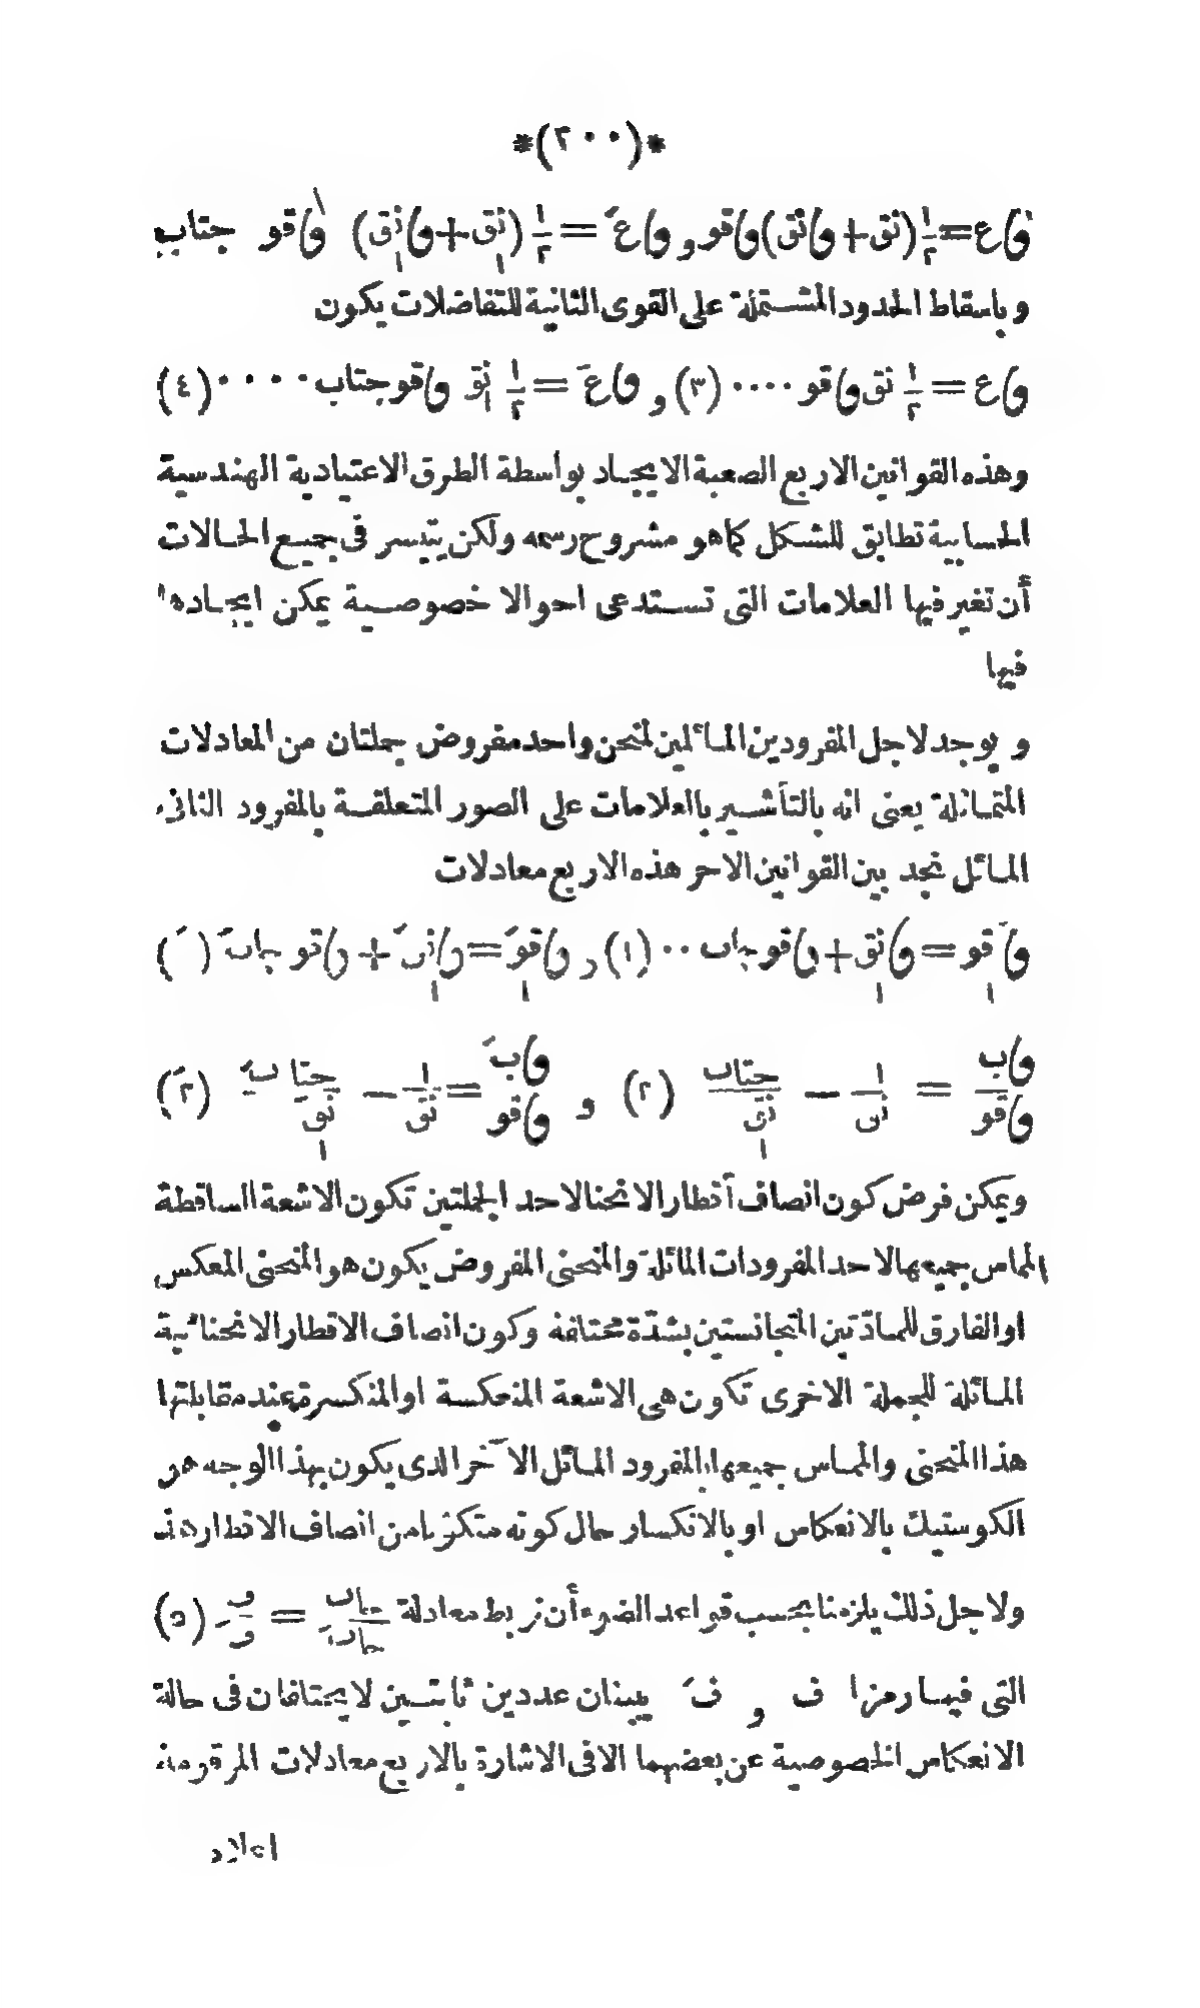 *(٢٠٠)*
وع=١/٢(نق+ونق)وقو و وعَ=١/٢(نق١+ونق١) وقو جتاب
وباسقاط الحدود المشتملة على القوى الثانية للتفاضلات يكون
وع=١/٢ نق وقو ....(٣) و وعَ=١/٢ نق١ وقو جتاب ....(٤)
وهذه القوانين الاربع الصعبة الايجاد بواسطة الطرق الاعتيادية الهندسية
الحسابية تطابق للشكل كما هو مشروح رسمه ولكن يتيسر فى جميع الحالات
أن تغير فيها العلامات التى تستدعى احوالا خصوصية يمكن ايجادها
فيها
و يوجد لاجل المفرودين المائلين لمنحن واحد مفروض جملتان من المعادلات
المتماثلة يعنى انه بالتأشير بالعلامات على الصور المتعلقة بالمفرود الثانى
المائل تجد بين القوانين الاخر هذه الاربع معادلات
وَقو١=ونق١+وقوجاب ..(١) و وقوَ١=ونقَ١+وقوجابَ (َ)
وب/وقو = ١/نق − جتاب/نق١ (٢) و وبَ/وقو=١/نق − جتابَ/نقَ١ (٢َ)
ويمكن فرض كون انصاف أقطار الانحنا لاحد الجملتين تكون الاشعة الساقطة
المماس جميعها لاحد المفرودات المائلة والمنحنى المفروض يكون هو المنحنى المعكس
او الفارق للمادّتين المتجانستين بشدّة مختلفة وكون انصاف الاقطار الانحنائية
المائلة للجملة الاخرى تكون هى الاشعة المنعكسة او المنكسرة عند مقابلتها
هذا المنحنى والمماس جميعها بالمفرود المائل الآخر الذى يكون بهذا الوجه هو
الكوستيك بالانعكاس او بالانكسار حال كونه متكونا من انصاف الاقطار هذه
ولاجل ذلك يلزمنا بحسب قواعد الضوء أن نربط معادلة جاب/جابَ = ف/فَ (٥)
التى فيها رمزا ف و فَ يبينان عددين ثابتين لا يختلفان فى حالة
الانعكاس الخصوصية عن بعضهما الا فى الاشارة بالاربع معادلات المرقومة
اعلاه